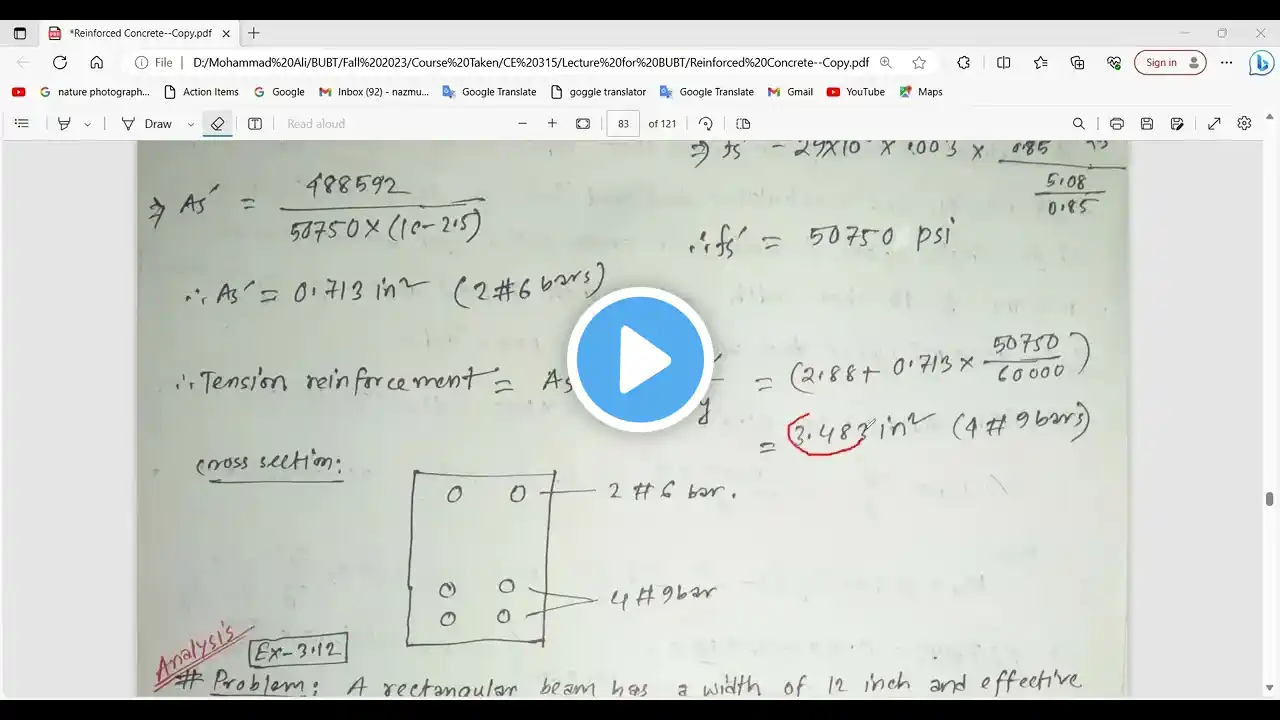 *Reinforced Concrete--Copy.pdf
File | D:/Mohammad%20Ali/BUBT/Fall%202023/Course%20Taken/CE%20315/Lecture%20for%20BUBT/Reinforced%20Concrete--Copy.pdf
Sign in
nature photograph... Action Items Google Inbox (92) - nazmu... Google Translate goggle translator Google Translate Gmail YouTube Maps
Draw Read aloud 83 of 121
⇒ fs' = 29×10 × .003 ×
5.08
0.85
⇒ As' = 488592
50750×(10-2.5)
∴ fs' = 50750 psi
∴ As' = 0.713 in² (2#6 bars)
∴ Tension reinforcement = As y = (2.88+ 0.713 × 50750/60000)
= 3.483 in² (4#9bars)
cross section:
2 #6 bar.
4 #9bar
Analysis
Ex-3.12
# Problem: A rectangular beam has a width of 12 inch and effective